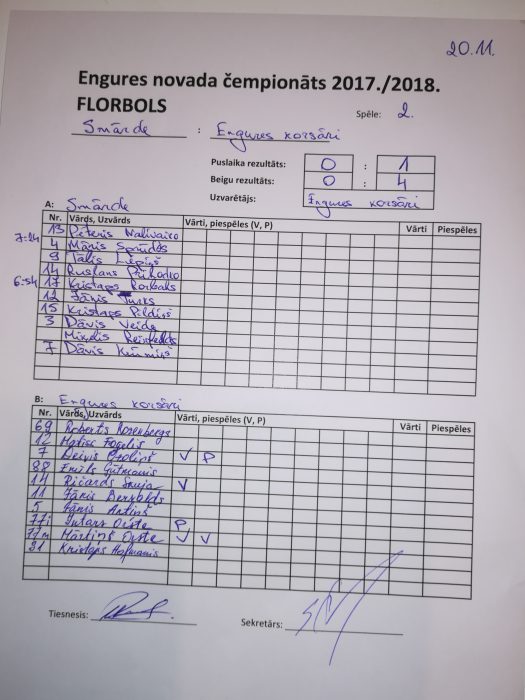 20.11.
Engures novada čempionāts 2017./2018.
FLORBOLS
Spēle: 2.
Smārde : Engures korsāri
Puslaika rezultāts: 0 : 1
Beigu rezultāts: 0 : 4
Uzvarētājs: Engures korsāri
A: Smārde
Nr. Vārds, Uzvārds Vārti, piespēles (V, P) Vārti Piespēles
13 Pēteris
4 Māris Sprūdžs
9 Tālis Liepiņš
14 Ruslans Prihodko
17 Kristaps
12 Jānis
15 Kristaps
3 Dāvis Veide
Miķelis
7 Dāvis
B: Engures korsāri
Nr. Vārds, Uzvārds Vārti, piespēles (V, P) Vārti Piespēles
69 Roberts Rozenbergs
12 Matīss Fogelis
7 Deivis Ozoliņš V P
88 Emīls Gūtmanis
14 Ričards Skuja V
11 Jānis Bergolds
5 Jānis Antiņš
77i Intars Oiste P
77m Mārtiņš Oiste V V
21 Kristaps Hofmanis
Tiesnesis:
Sekretārs: